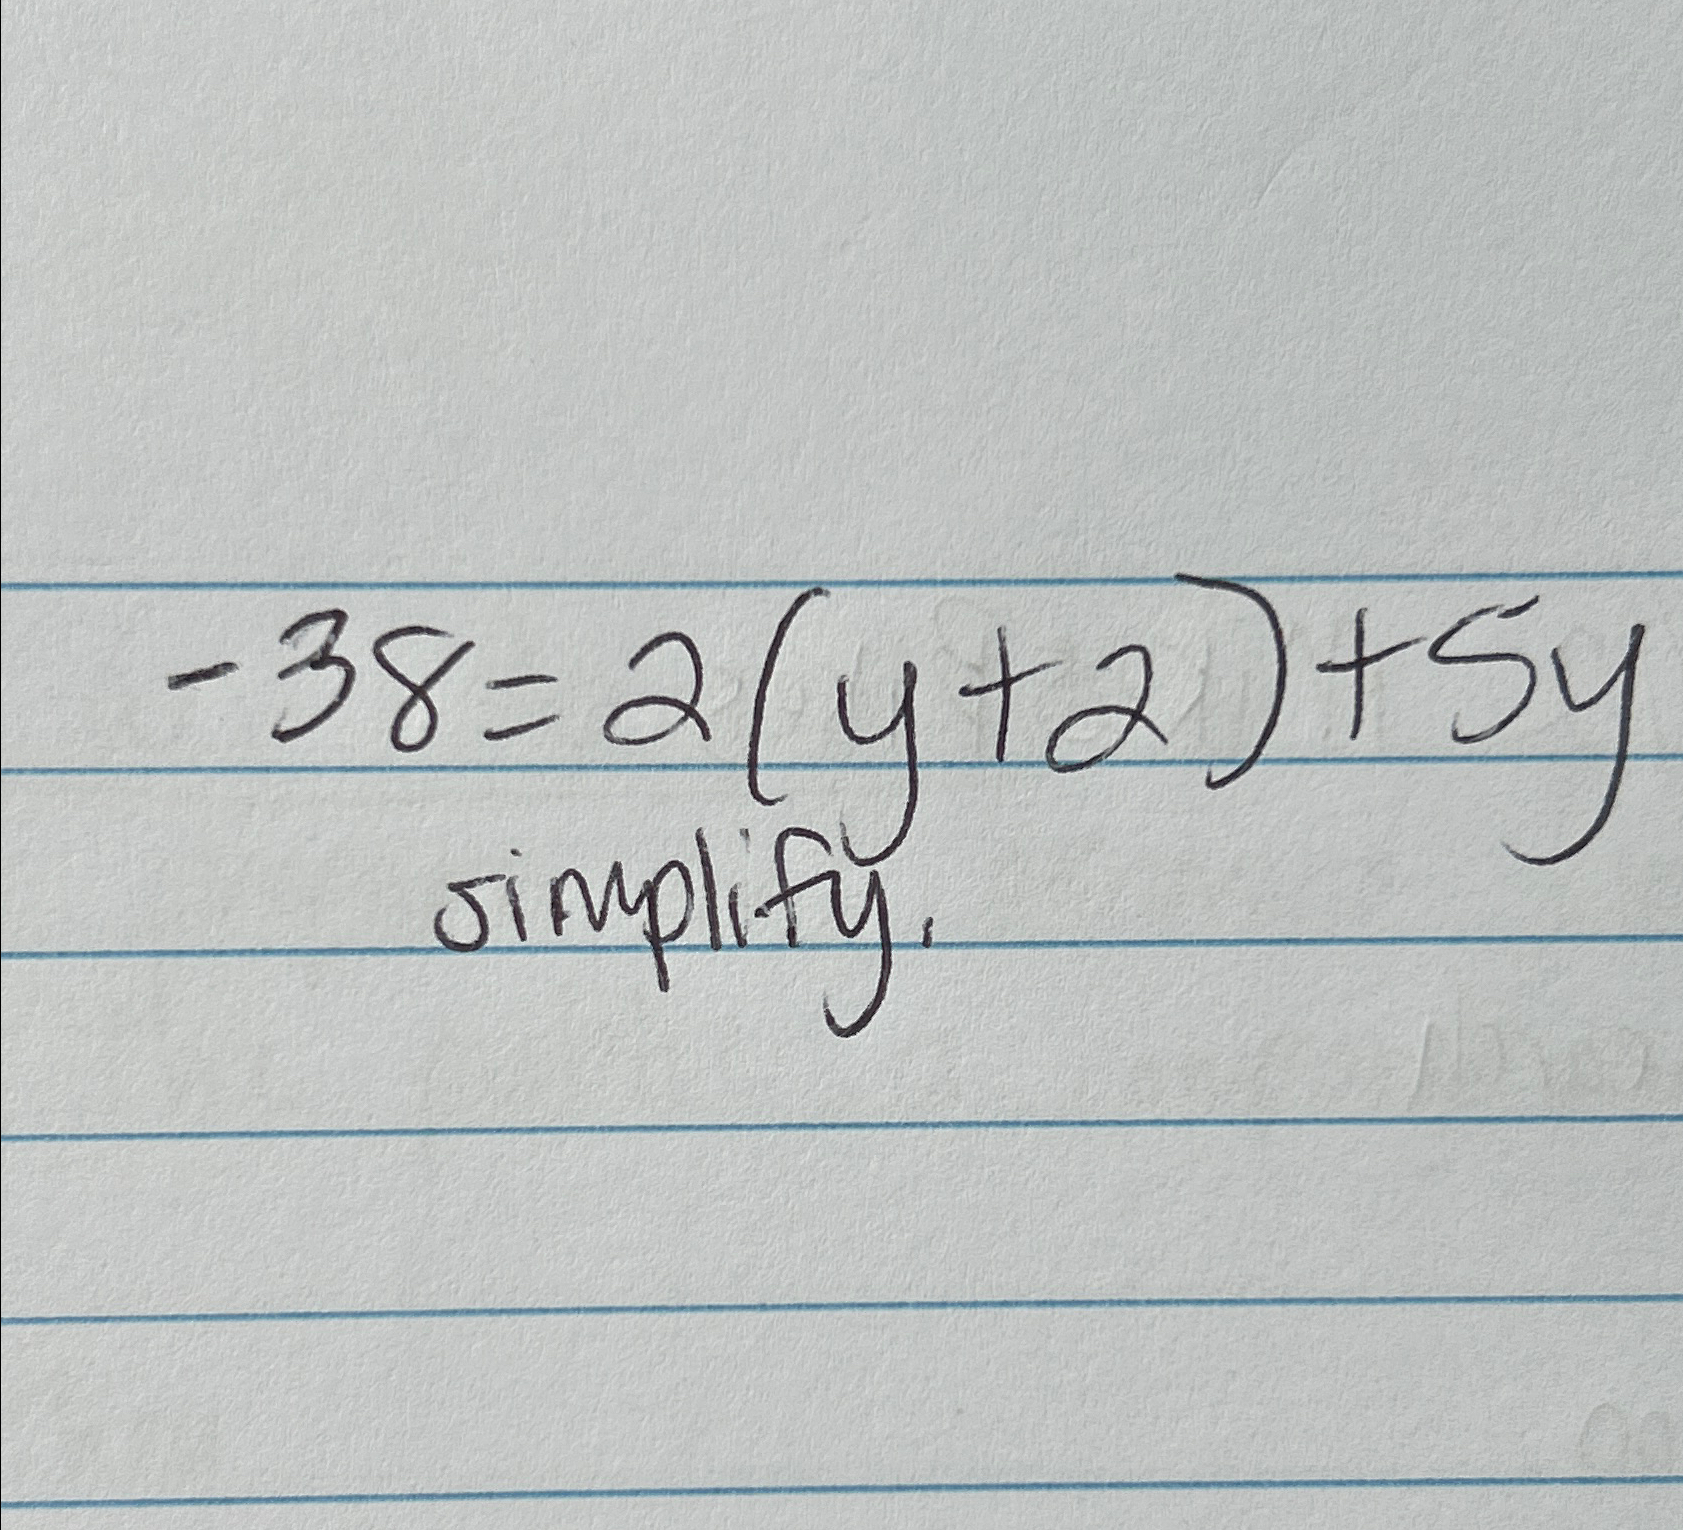 -38=2(y+2)+5y
simplify.